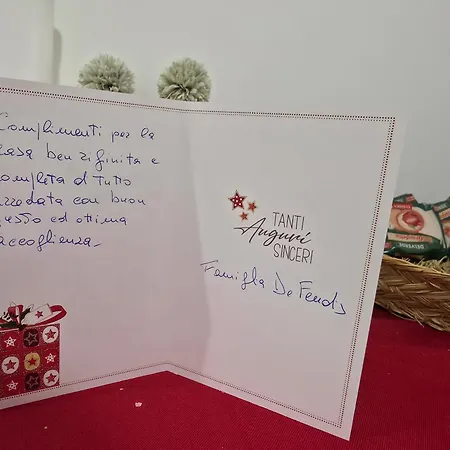 Complimenti per la
casa ben rifinita e
completa di tutto
arredata con buon
gusto ed ottima
accoglienza_
TANTI
Auguri
SINCERI
Famiglia De